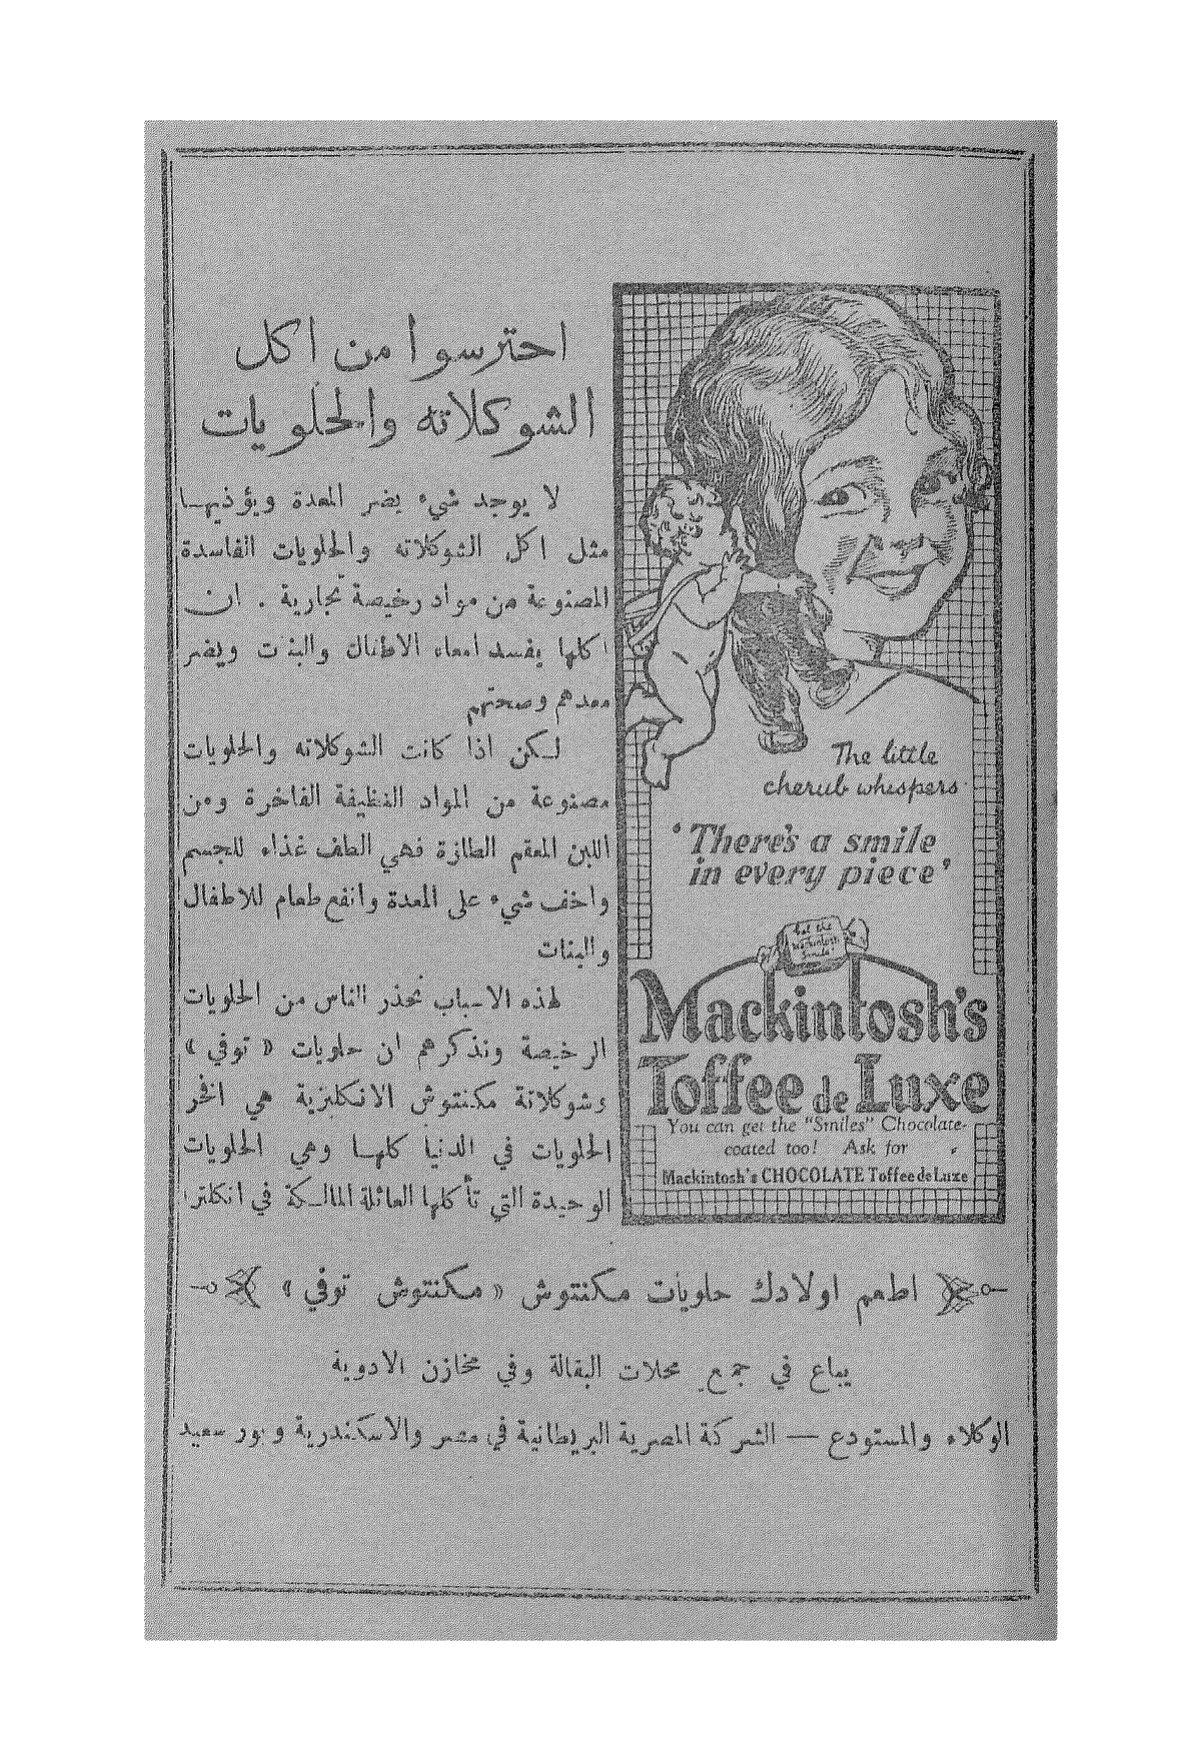 احترسوا من اكل
الشوكلاته والحلويات
لا يوجد شيء يضر المعدة ويؤذيها
مثل اكل الشوكلاته والحلويات الفاسدة
المصنوعة من مواد رخيصة تجارية . ان
اكلها يفسد امعاء الاطفال والبنات ويضر
معدهم وصحتهم
لكن اذا كانت الشوكلاته والحلويات
مصنوعة من المواد النظيفة الفاخرة ومن
اللبن المعقم الطازة فهي الطف غذاء للجسم
واخف شيء على المعدة وانفع طعام للاطفال
والبنات
لهذه الاسباب نحذر الناس من الحلويات
الرخيصة ونذكرهم ان حلويات « توفي »
وشوكلاتة مكنتوش الانكليزية هي افخر
الحلويات في الدنيا كلها وهي الحلويات
الوحيدة التي تأكلها العائلة المالكة في انكلترا
The little
cherub whispers
'There's a smile
in every piece'
Mackintosh's
Toffee de Luxe
You can get the "Smiles" Chocolate-
coated too! Ask for
Mackintosh's CHOCOLATE Toffee de Luxe
اطعم اولادك حلويات مكنتوش « مكنتوش توفي »
يباع في جميع محلات البقالة وفي مخازن الادوية
الوكلاء والمستودع — الشركة المصرية البريطانية في مصر والاسكندرية وبور سعيد